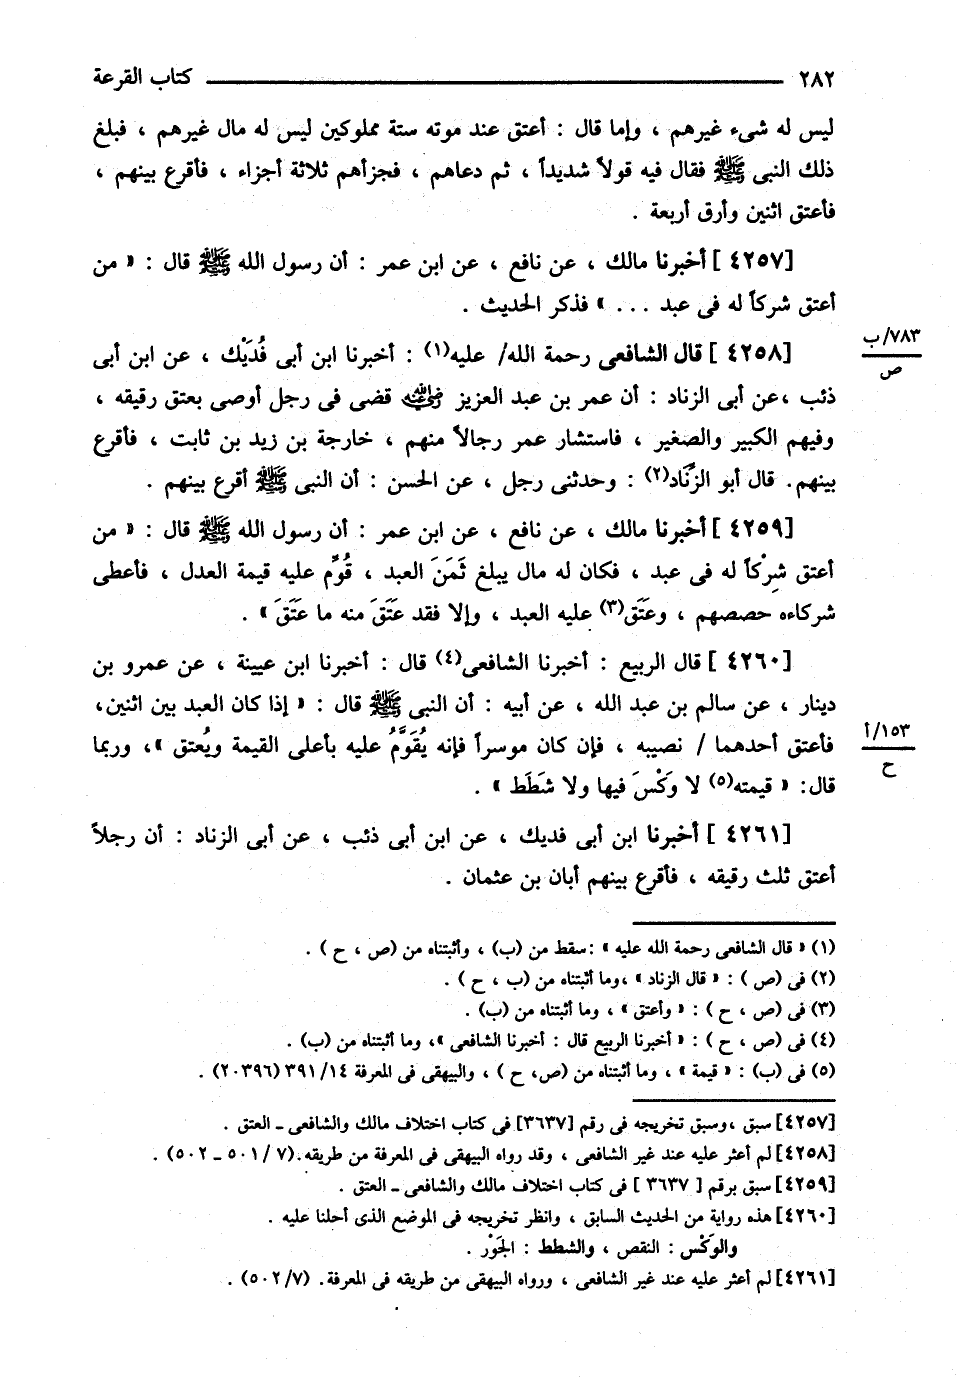 ٢٨٢ كتاب القرعة
ليس له شىء غيرهم ، وإما قال : أعتق عند موته ستة مملوكين ليس له مال غيرهم ، فبلغ
ذلك النبى ﷺ فقال فيه قولاً شديداً ، ثم دعاهم ، فجزأهم ثلاثة أجزاء ، فأقرع بينهم ،
فأعتق اثنين وأرق أربعة .
[٤٢٥٧] أخبرنا مالك ، عن نافع ، عن ابن عمر : أن رسول الله ﷺ قال : « من
أعتق شركاً له فى عبد ... » فذكر الحديث .
[٤٢٥٨] قال الشافعى رحمة الله/ عليه(١) : أخبرنا ابن أبى فُدَيْك ، عن ابن أبى
٧٨٣/ب
ص
ذئب ،عن أبى الزناد : أن عمر بن عبد العزيز رضي الله عنه قضى فى رجل أوصى بعتق رقيقه ،
وفيهم الكبير والصغير ، فاستشار عمر رجالاً منهم ، خارجة بن زيد بن ثابت ، فأقرع
بينهم. قال أبو الزِّنَاد(٢) : وحدثنى رجل ، عن الحسن : أن النبى ﷺ أقرع بينهم .
[٤٢٥٩] أخبرنا مالك ، عن نافع ، عن ابن عمر : أن رسول الله ﷺ قال : « من
أعتق شِرْكاً له فى عبد ، فكان له مال يبلغ ثَمَنَ العبد ، قُوِّم عليه قيمة العدل ، فأعطى
شركاءه حصصهم ، وعَتَق(٣) عليه العبد ، وإلا فقد عَتَقَ منه ما عَتَقَ » .
[٤٢٦٠] قال الربيع : أخبرنا الشافعى(٤) قال : أخبرنا ابن عيينة ، عن عمرو بن
دينار ، عن سالم بن عبد الله ، عن أبيه : أن النبى ﷺ قال : « إذا كان العبد بين اثنين،
فأعتق أحدهما / نصيبه ، فإن كان موسراً فإنه يُقَوَّمُ عليه بأعلى القيمة ويُعتق »، وربما
١٥٣/أ
ح
قال: « قيمته(٥) لا وَكْسَ فيها ولا شَطَط » .
[٤٢٦١] أخبرنا ابن أبى فديك ، عن ابن أبى ذئب ، عن أبى الزناد : أن رجلاً
أعتق ثلث رقيقه ، فأقرع بينهم أبان بن عثمان .
(١) « قال الشافعى رحمة الله عليه » :سقط من (ب) ، وأثبتناه من (ص ، ح ) .
(٢) فى (ص ) : « قال الزناد » ،وما أثبتناه من (ب ، ح ) .
(٣) فى (ص ، ح ) : « وأعتق » ، وما أثبتناه من (ب) .
(٤) فى (ص ، ح ) : « أخبرنا الربيع قال : أخبرنا الشافعى »، وما أثبتناه من (ب) .
(٥) فى (ب) : « قيمة » ، وما أثبتناه من (ص، ح ) ، والبيهقى فى المعرفة ٣٩١/١٤ (٢٠٣٩٦) .
[٤٢٥٧] سبق ،وسبق تخريجه فى رقم [٣٦٣٧] فى كتاب اختلاف مالك والشافعى ـ العتق .
[٤٢٥٨] لم أعثر عليه عند غير الشافعى ، وقد رواه البيهقى فى المعرفة من طريقه.(٧ /٥٠١ ـ ٥٠٢) .
[٤٢٥٩] سبق برقم [ ٣٦٣٧ ] فى كتاب اختلاف مالك والشافعى ـ العتق .
[٤٢٦٠] هذه رواية من الحديث السابق ، وانظر تخريجه فى الموضع الذى أحلنا عليه .
والوَكْس : النقص ، والشطط : الجَوْر .
[٤٢٦١] لم أعثر عليه عند غير الشافعى ، ورواه البيهقى من طريقه فى المعرفة. (٥٠٢/٧) .